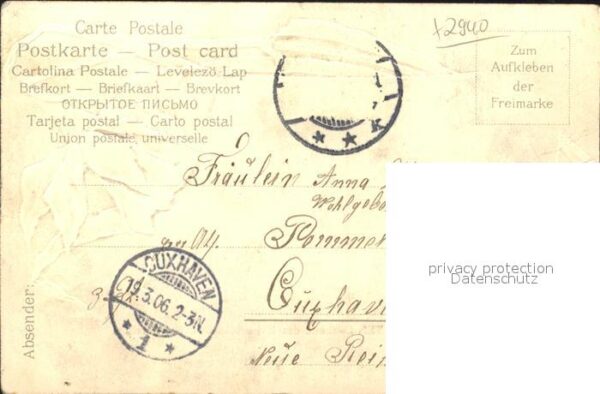 Carte Postale
Postkarte — Post card
Cartolina Postale — Levelező-Lap
Brefkort — Briefkaart — Brevkort
ОТКРЫТОЕ ПИСЬМО
Tarjeta postal — Carto postal
Union postale universelle
+2940
Zum
Aufkleben
der
Freimarke
K
Fräulein Anna
Wohlgebo
Pommer
Cuxhav
Neue Rei
CUXHAVEN
19.3.06. 2-3N.
* 1 *
Absender:
privacy protection
Datenschutz